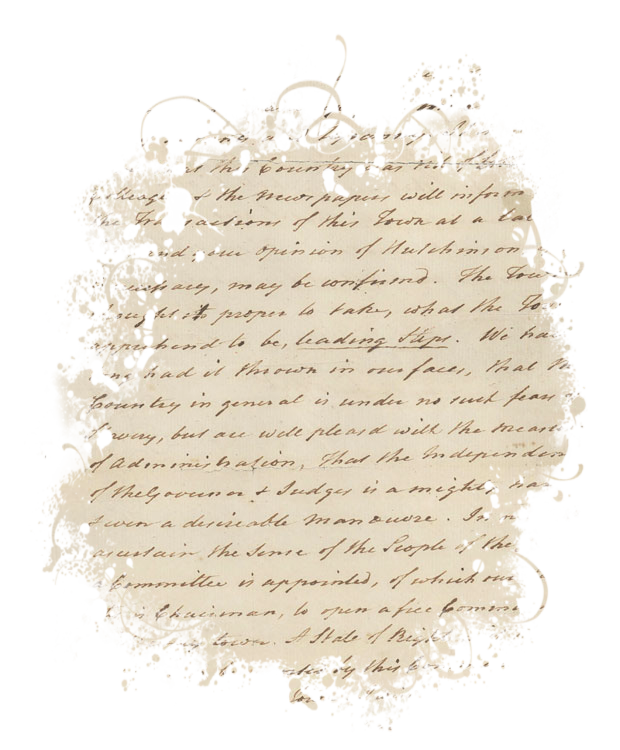 Tyranny
this Country was not
& the Newspapers will inform
the Transactions of this Town at a
and our Opinion of Hutchinson
may be confirmed. The Town
thought it proper to take, what the Tow
apprehend to be, leading Steps. We have
had it thrown in our faces, that the
Country in general is under no such fears
but are well pleasd with the meas
of Administration, That the Independen
of the Governor & Judges is a mighty
a desireable Manouvre. In
ascertain the Sense of the People of the
Committee is appointed, of which our
is Chairman, to open a free Commu
town. A State of Right
by this